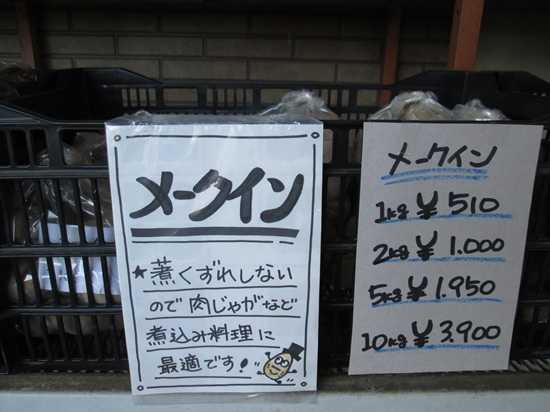 メークイン
★煮くずれしない
ので肉じゃがなど
煮込み料理に
最適です!
メークイン
1kg ¥510
2kg ¥1.000
5kg ¥1.950
10kg ¥3.900